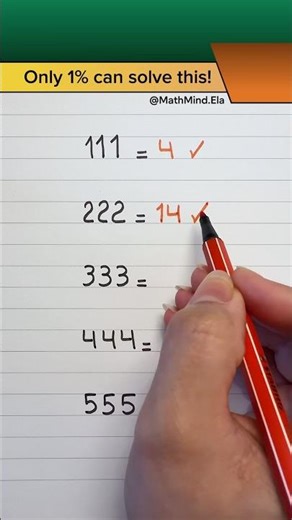 Only 1% can solve this!
@MathMind.Ela
111 = 4 ✓
222 = 14 ✓
333 =
444 =
555